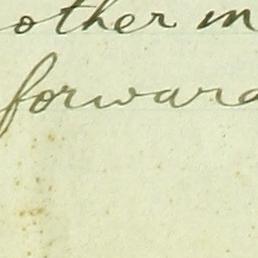 other m
forward